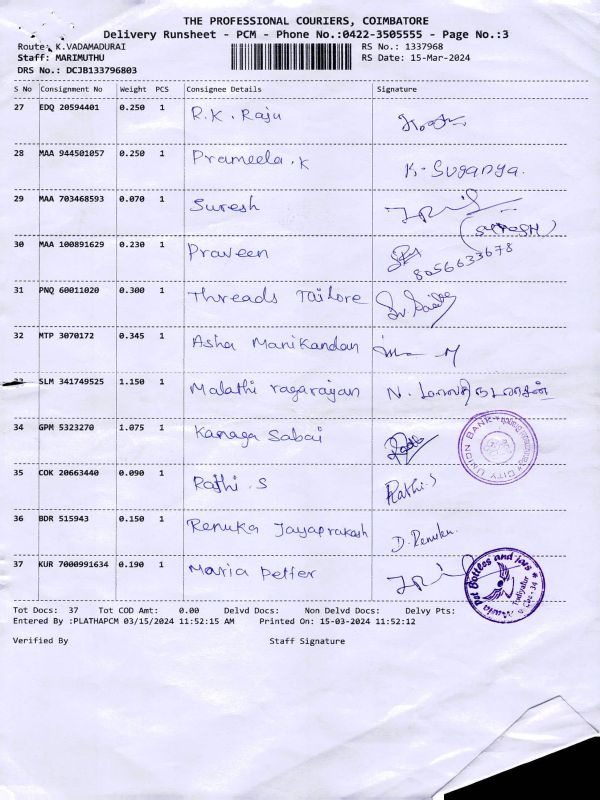 THE PROFESSIONAL COURIERS, COIMBATORE
Delivery Runsheet - PCM - Phone No.:0422-3505555 - Page No.:3
Route: K.VADAMADURAI RS No.: 1337968
Staff: MARIMUTHU RS Date: 15-Mar-2024
DRS No.: DCJB133796803
S No Consignment No Weight PCS Consignee Details Signature
27 EDQ 20594401 0.250 1 R.K. Raju
28 MAA 944501057 0.250 1 Prameela.K K. Suganya.
29 MAA 703468593 0.070 1 Suresh
(SURESH)
30 MAA 100891629 0.230 1 Praveen
8056633678
31 PNQ 60011020 0.300 1 Threads Tailore
32 MTP 3070172 0.345 1 Asha Manikandan
33 SLM 341749525 1.150 1 Malathi ragarayan N.
34 GPM 5323270 1.075 1 Kanaga Sabai
CITY UNION BANK
35 COK 20663440 0.090 1 Rathi.S Rathi.S
36 BDR 515943 0.150 1 Renuka Jayaprakash D. Renuka.
37 KUR 7000991634 0.190 1 Maria petter
Pet Bottles and Jars
Tot Docs: 37 Tot COD Amt: 0.00 Delvd Docs: Non Delvd Docs: Delvy Pts:
Entered By :PLATHAPCM 03/15/2024 11:52:15 AM Printed On: 15-03-2024 11:52:12
Verified By Staff Signature